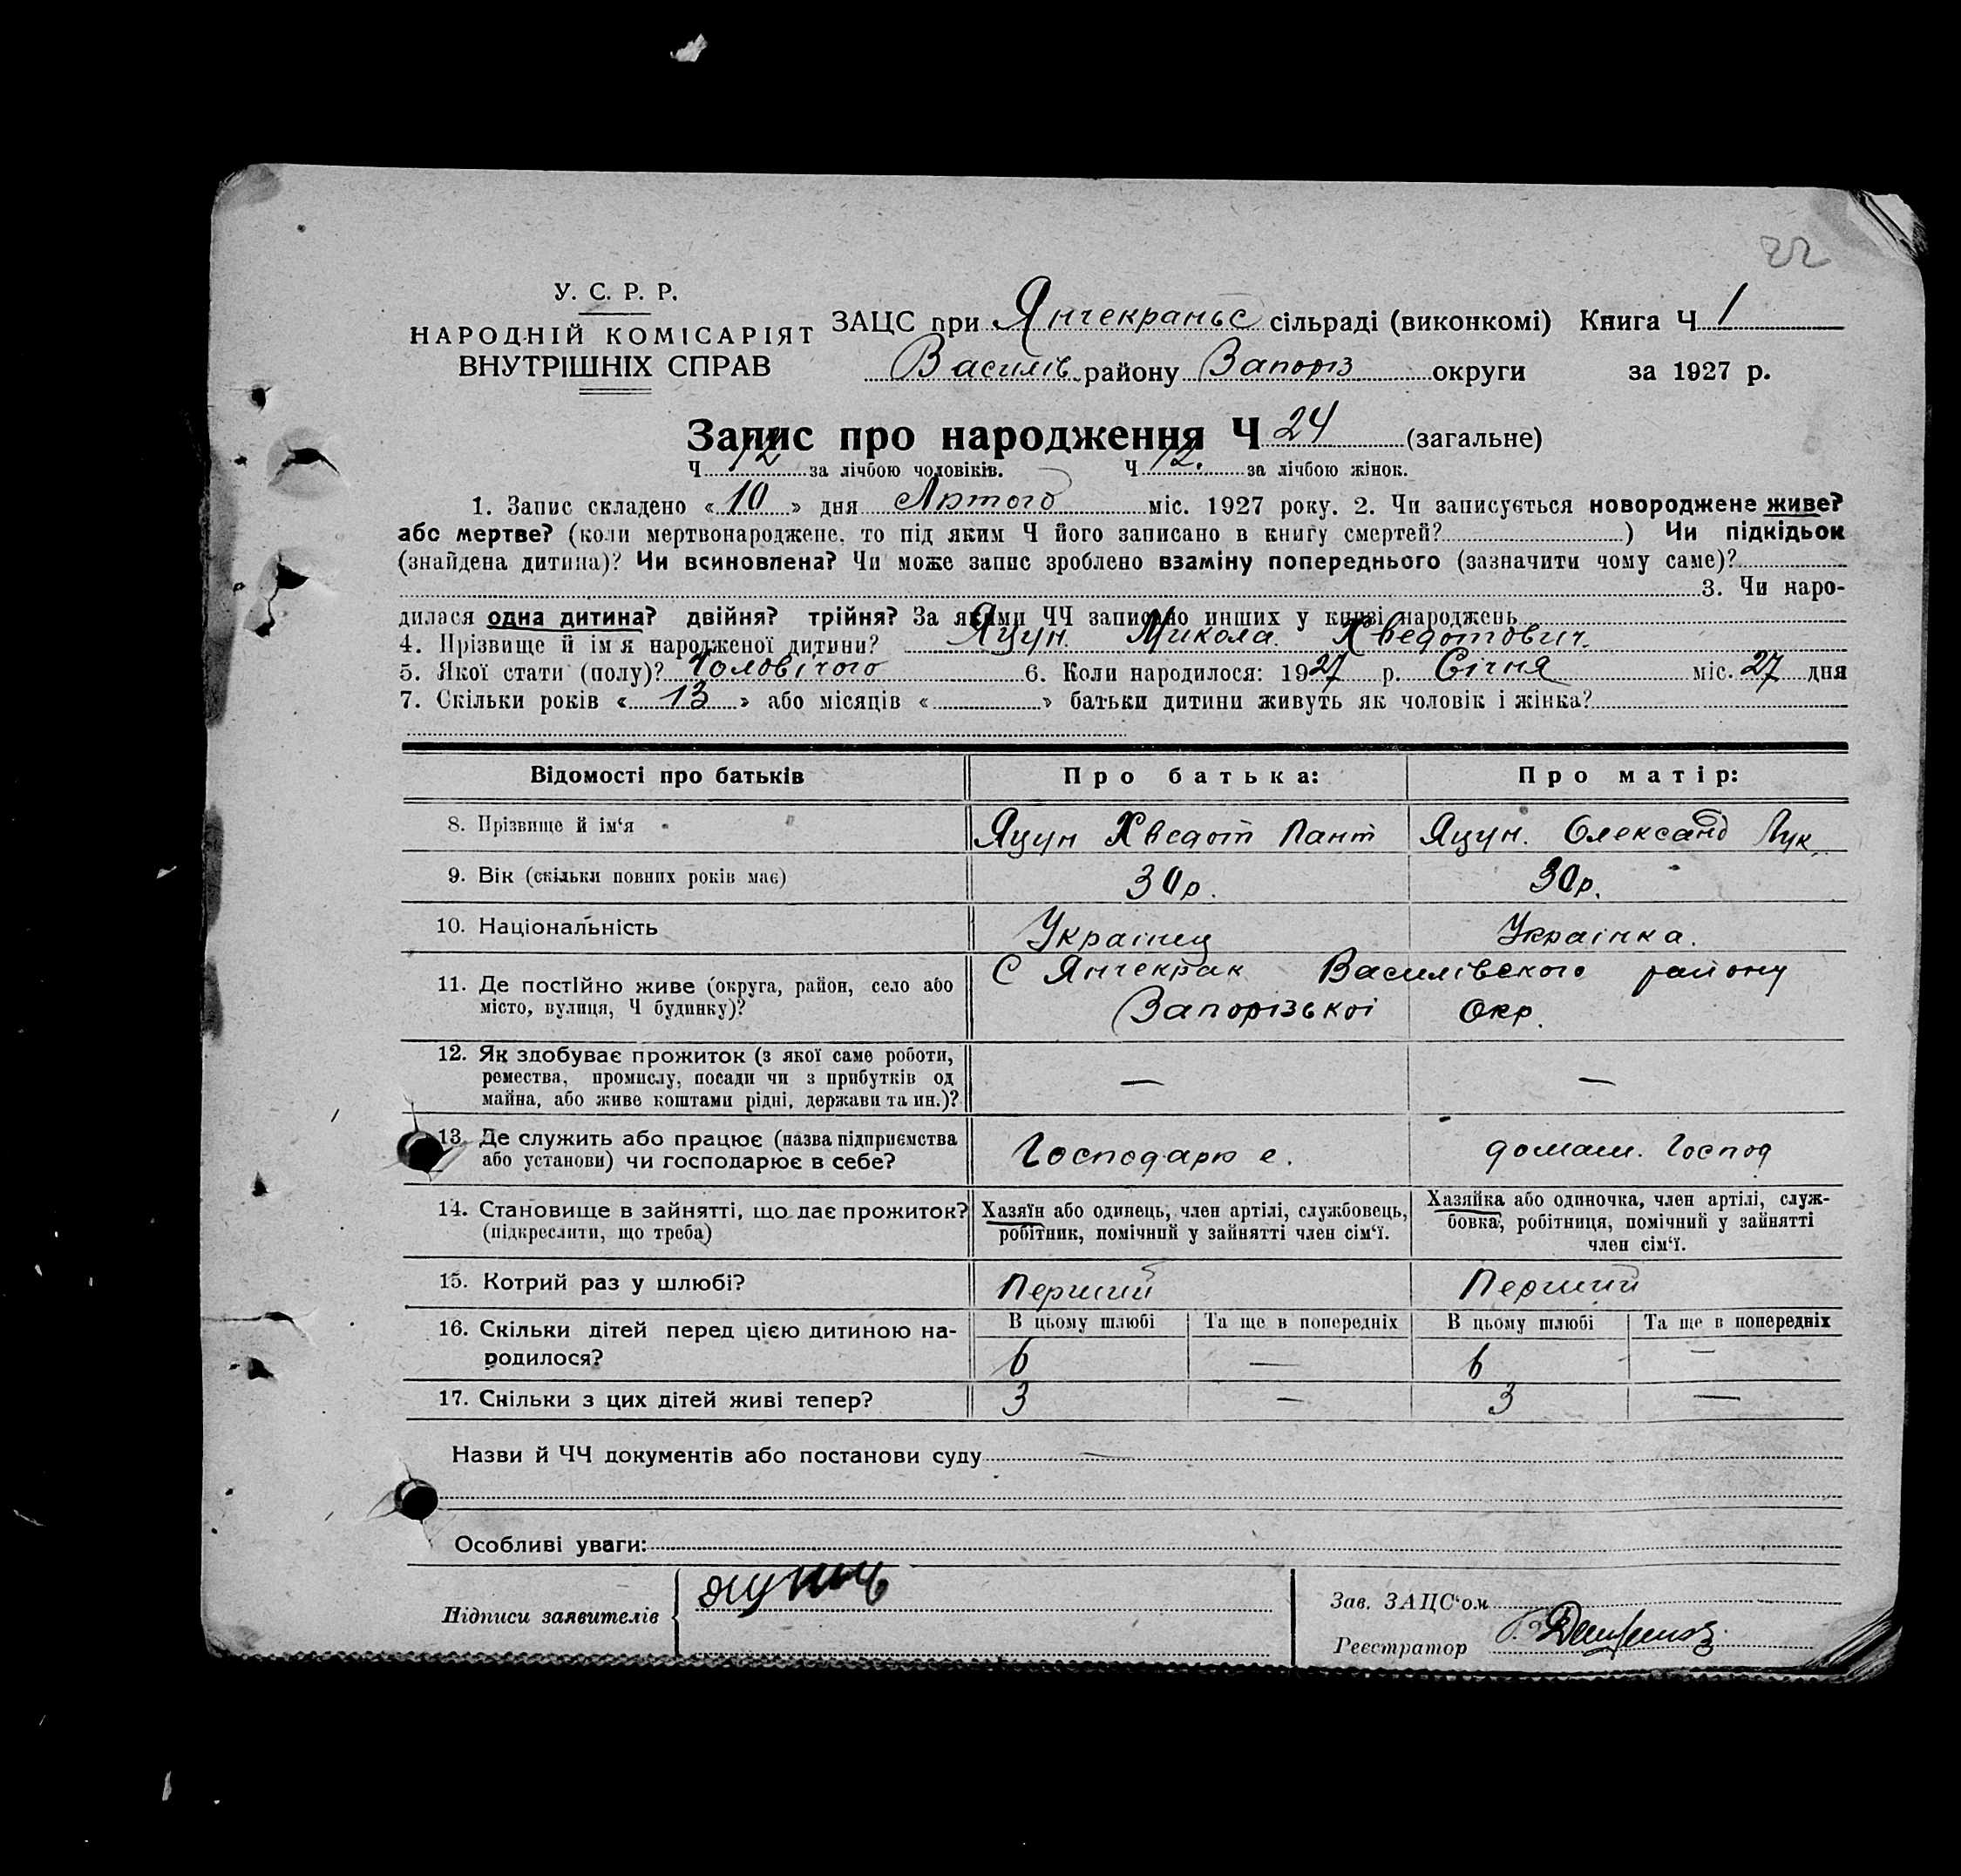 22
У. С. Р. Р.
НАРОДНІЙ КОМІСАРІЯТ
ВНУТРІШНІХ СПРАВ
ЗАЦС при Янчекраньс сільраді (виконкомі) Книга Ч 1
Василів району Запоріз округи за 1927 р.
Запис про народження Ч 24 (загальне)
Ч 12 за лічбою чоловіків. Ч 12. за лічбою жінок.
1. Запис складено « 10 » дня Лютого міс. 1927 року. 2. Чи записується новороджене живе?
або мертве? (коли мертвонароджене, то під яким Ч його записано в книгу смертей? ) Чи підкідьок
(знайдена дитина)? Чи всиновлена? Чи може запис зроблено взаміну попереднього (зазначити чому саме)?
3. Чи наро-
дилася одна дитина? двійня? трійня? За якими ЧЧ записано инших у книзі народжень
4. Прізвище й ім'я народженої дитини? Яцун. Микола. Хведотович.
5. Якої стати (полу)? Чоловічого 6. Коли народилося: 1927 р. Січня міс. 27 дня
7. Скільки років « 13 » або місяців « » батьки дитини живуть як чоловік і жінка?
Відомості про батьків Про батька: Про матір:
8. Прізвище й ім'я Яцун Хведот Пант Яцун. Олександ Лук.
9. Вік (скільки повних років має) 30р. 30р.
10. Національність Українец Українка.
11. Де постійно живе (округа, район, село або С Янчекрак Василівского району
місто, вулиця, Ч будинку)? Запорізькоі Окр.
12. Як здобуває прожиток (з якої саме роботи,
ремества, промислу, посади чи з прибутків од — —
майна, або живе коштами рідні, держави та ин.)?
13. Де служить або працює (назва підприємства
або установи) чи господарює в себе? Господарює. домаш. Господ
14. Становище в зайнятті, що дає прожиток? Хазяїн або одинець, член артілі, службовець, Хазяйка або одиночка, член артілі, служ-
(підкреслити, що треба) робітник, помічний у зайнятті член сім'ї. бовка, робітниця, помічний у зайнятті
член сім'ї.
15. Котрий раз у шлюбі? Перший Перший
16. Скільки дітей перед цією дитиною на- В цьому шлюбі Та ще в попередніх В цьому шлюбі Та ще в попередніх
родилося? 6 — 6 —
17. Скільки з цих дітей живі тепер? 3 — 3 —
Назви й ЧЧ документів або постанови суду —
Особливі уваги:
Підписи заявителів Яцунь
Зав. ЗАЦС'ом
Реєстратор